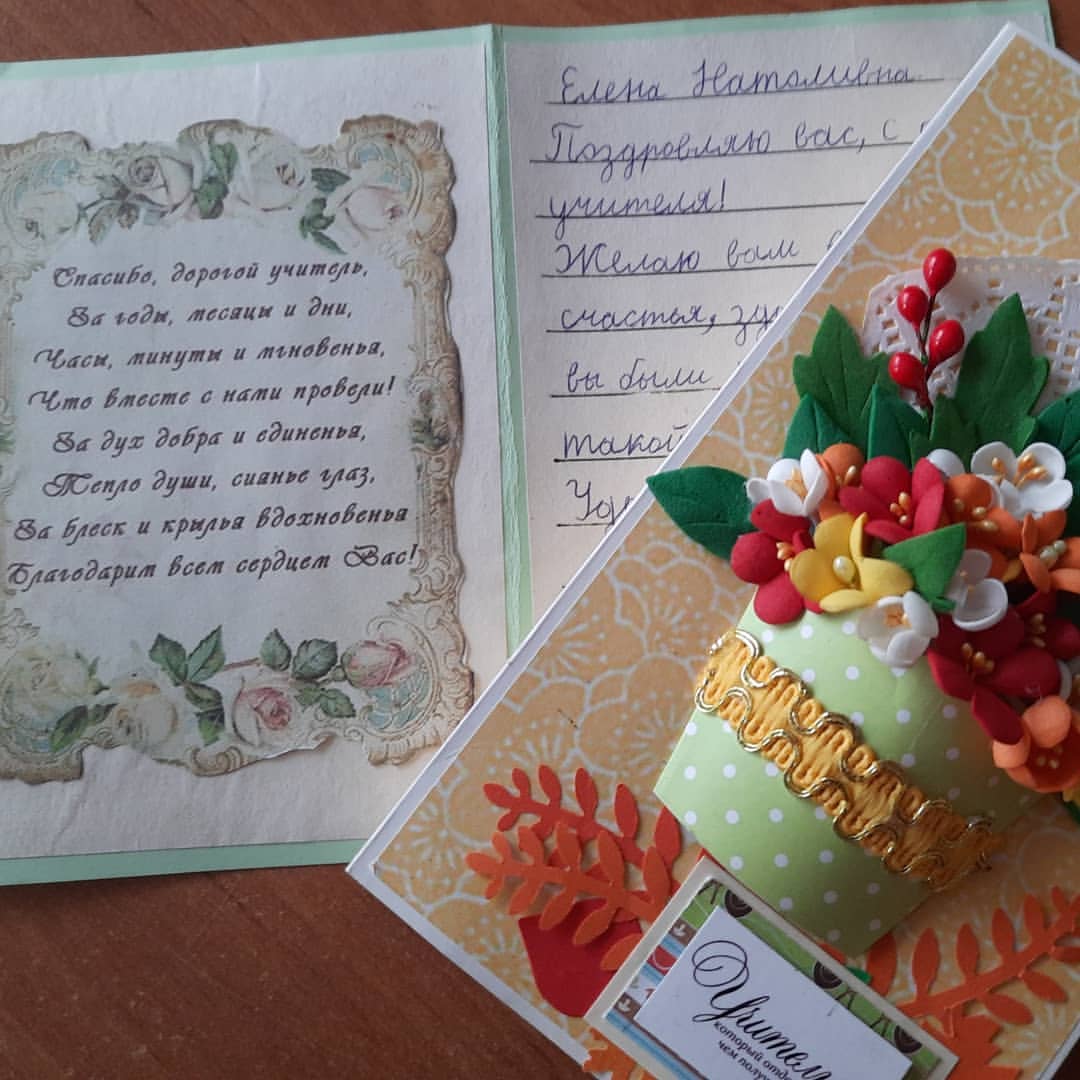 Спасибо, дорогой учитель,
За годы, месяцы и дни,
Часы, минуты и мгновенья,
Что вместе с нами провели!
За дух добра и единенья,
Тепло души, сиянье глаз,
За блеск и крылья вдохновенья
Благодарим всем сердцем Вас!
Елена Натоливна
Поздровляю вас, с
учителя!
Желаю вам
счастья,
вы были
такой
который
чем